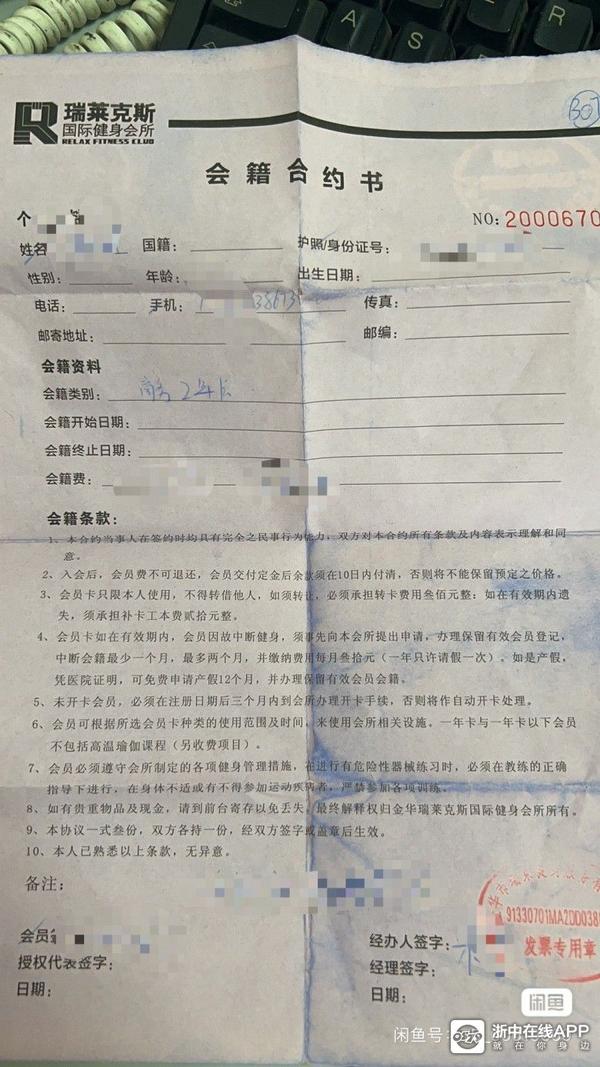 A
S
E
R
瑞莱克斯
国际健身会所
RELAX FITNESS CLUB
会籍合约书
个
NO: 2000670
姓名
国籍:
护照/身份证号:
性别:
年龄:
出生日期:
电话:
手机:
传真:
邮寄地址:
邮编:
会籍资料
会籍类别: 商务2年卡
会籍开始日期:
会籍终止日期:
会籍费:
会籍条款:
1、本合约当事人在签约时均具有完全之民事行为能力，双方对本合约所有条款及内容表示理解和同
意。
2、入会后，会员费不可退还，会员交付定金后余款须在10日内付清，否则将不能保留预定之价格。
3、会员卡只限本人使用，不得转借他人，如须转让，必须承担转卡费用叁佰元整：如在有效期内遗
失，须承担补卡工本费贰拾元整。
4、会员卡如在有效期内，会员因故中断健身，须事先向本会所提出申请，办理保留有效会员登记，
中断会籍最少一个月，最多两个月，并缴纳费用每月叁拾元（一年只许请假一次）。如是产假，
凭医院证明，可免费申请产假12个月，并办理保留有效会员会籍。
5、未开卡会员，必须在注册日期后三个月内到会所办理开卡手续，否则将作自动开卡处理。
6、会员可根据所选会员卡种类的使用范围及时间，来使用会所相关设施。一年卡与一年卡以下会员
不包括高温瑜伽课程（另收费项目）。
7、会员必须遵守会所制定的各项健身管理措施，在进行有危险性器械练习时，必须在教练的正确
指导下进行，在身体不适或有不得参加运动疾病者，严禁参加各项训练。
8、如有贵重物品及现金，请到前台寄存以免丢失，最终解释权归金华瑞莱克斯国际健身会所所有。
9、本协议一式叁份，双方各持一份，经双方签字或盖章后生效。
10、本人已熟悉以上条款，无异意。
备注:
91330701MA2DD038
发票专用章
会员
经办人签字:
授权代表签字:
经理签字:
日期:
日期:
闲鱼
闲鱼号
浙中在线APP
就在你身边